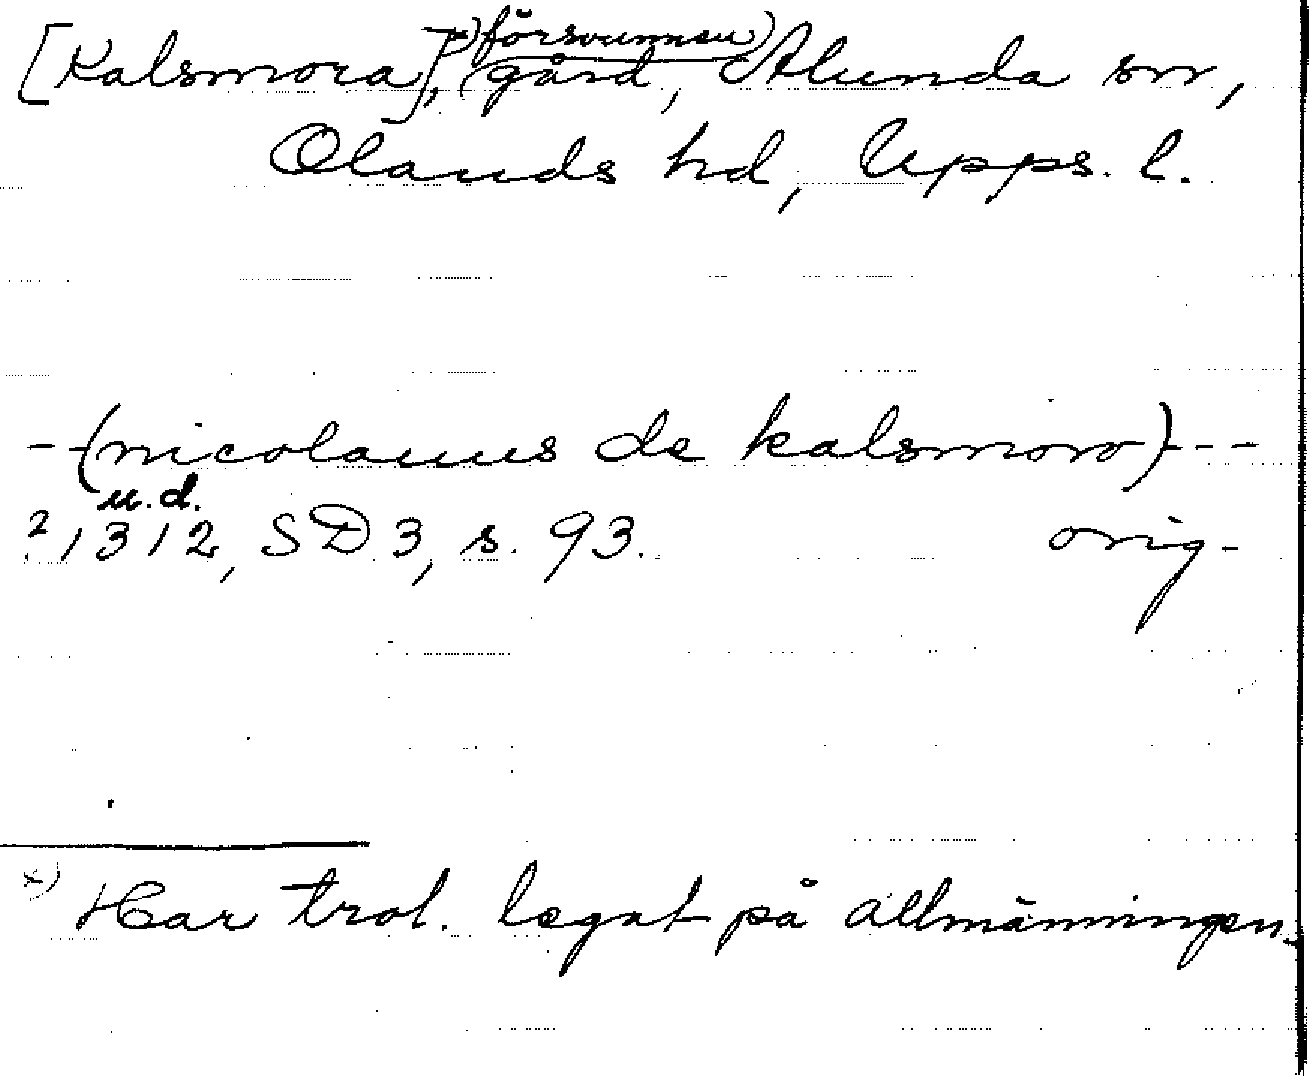 [Kalsmora],x) (försvunnen) gård, Alunda sn,
Ölands hd, Upps. l.
- (nicolauus de kalsmoro) - - -
u.d.
? 1312, SD 3, s. 93. orig.
x) Har trol. legat på allmänningen.